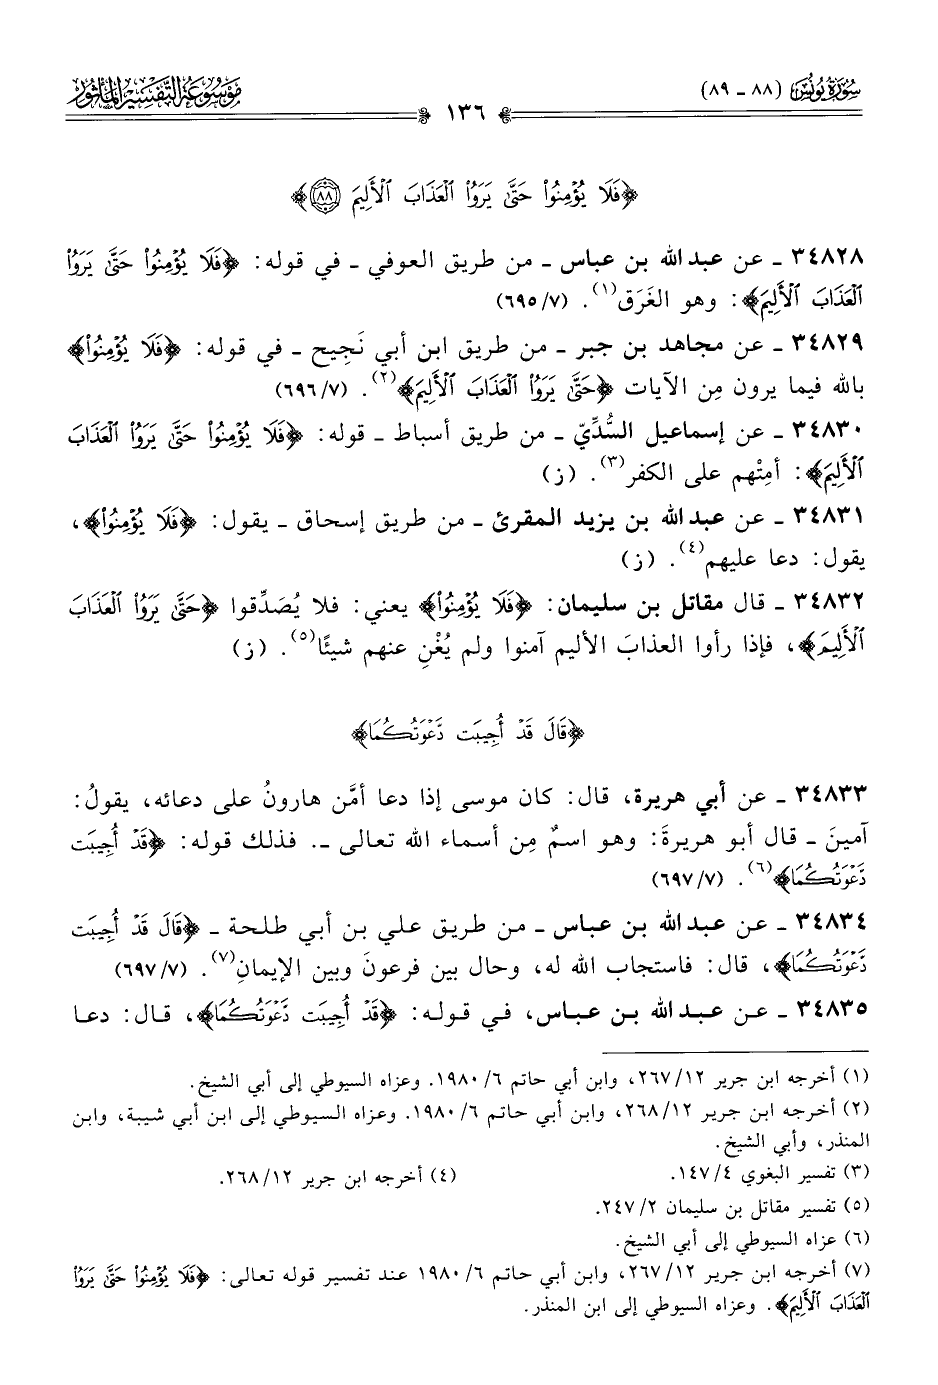 سُورَةُ يُونُسَ (٨٨ ـ ٨٩)
١٣٦
مَوْسُوعَةُ التَّفْسِيرِ المَأْثُورِ
﴿فَلَا يُؤْمِنُوا۟ حَتَّىٰ يَرَوُا۟ ٱلْعَذَابَ ٱلْأَلِيمَ ٨٨﴾
٣٤٨٢٨ ـ عن عبد الله بن عباس ـ من طريق العوفي ـ في قوله: ﴿فَلَا يُؤْمِنُوا۟ حَتَّىٰ يَرَوُا۟
ٱلْعَذَابَ ٱلْأَلِيمَ﴾: وهو الغَرَق(١). (٦٩٥/٧)
٣٤٨٢٩ ـ عن مجاهد بن جبر ـ من طريق ابن أبي نَجِيح ـ في قوله: ﴿فَلَا يُؤْمِنُوا۟﴾
بالله فيما يرون مِن الآيات ﴿حَتَّىٰ يَرَوُا۟ ٱلْعَذَابَ ٱلْأَلِيمَ﴾(٢). (٦٩٦/٧)
٣٤٨٣٠ ـ عن إسماعيل السُّدِّيّ ـ من طريق أسباط ـ قوله: ﴿فَلَا يُؤْمِنُوا۟ حَتَّىٰ يَرَوُا۟ ٱلْعَذَابَ
ٱلْأَلِيمَ﴾: أمِتْهم على الكفر(٣). (ز)
٣٤٨٣١ ـ عن عبد الله بن يزيد المقرئ ـ من طريق إسحاق ـ يقول: ﴿فَلَا يُؤْمِنُوا۟﴾،
يقول: دعا عليهم(٤). (ز)
٣٤٨٣٢ ـ قال مقاتل بن سليمان: ﴿فَلَا يُؤْمِنُوا۟﴾ يعني: فلا يُصَدِّقوا ﴿حَتَّىٰ يَرَوُا۟ ٱلْعَذَابَ
ٱلْأَلِيمَ﴾، فإذا رأوا العذابَ الأليم آمنوا ولم يُغْنِ عنهم شيئًا(٥). (ز)
﴿قَالَ قَدْ أُجِيبَت دَّعْوَتُكُمَا﴾
٣٤٨٣٣ ـ عن أبي هريرة، قال: كان موسى إذا دعا أمَّن هارونُ على دعائه، يقولُ:
آمينَ ـ قال أبو هريرةَ: وهو اسمٌ مِن أسماء الله تعالى ـ. فذلك قوله: ﴿قَدْ أُجِيبَت
دَّعْوَتُكُمَا﴾(٦). (٦٩٧/٧)
٣٤٨٣٤ ـ عن عبد الله بن عباس ـ من طريق علي بن أبي طلحة ـ ﴿قَالَ قَدْ أُجِيبَت
دَّعْوَتُكُمَا﴾، قال: فاستجاب الله له، وحال بين فرعونَ وبين الإيمانِ(٧). (٦٩٧/٧)
٣٤٨٣٥ ـ عن عبد الله بن عباس، في قوله: ﴿قَدْ أُجِيبَت دَّعْوَتُكُمَا﴾، قال: دعا
(١) أخرجه ابن جرير ١٢/ ٢٦٧، وابن أبي حاتم ٦/ ١٩٨٠. وعزاه السيوطي إلى أبي الشيخ.
(٢) أخرجه ابن جرير ١٢/ ٢٦٨، وابن أبي حاتم ٦/ ١٩٨٠. وعزاه السيوطي إلى ابن أبي شيبة، وابن
المنذر، وأبي الشيخ.
(٣) تفسير البغوي ٤/ ١٤٧. (٤) أخرجه ابن جرير ١٢/ ٢٦٨.
(٥) تفسير مقاتل بن سليمان ٢/ ٢٤٧.
(٦) عزاه السيوطي إلى أبي الشيخ.
(٧) أخرجه ابن جرير ١٢/ ٢٦٧، وابن أبي حاتم ٦/ ١٩٨٠ عند تفسير قوله تعالى: ﴿فَلَا يُؤْمِنُوا۟ حَتَّىٰ يَرَوُا۟
ٱلْعَذَابَ ٱلْأَلِيمَ﴾. وعزاه السيوطي إلى ابن المنذر.